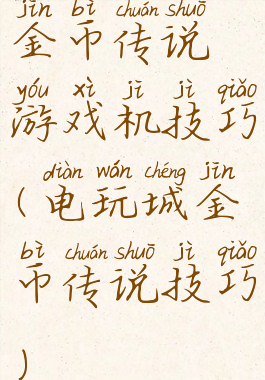 jīn bì chuán shuō
金币传说
yóu xì jī jì qiǎo
游戏机技巧
diàn wán chéng jīn
(电玩城金
bì chuán shuō jì qiǎo
币传说技巧
)